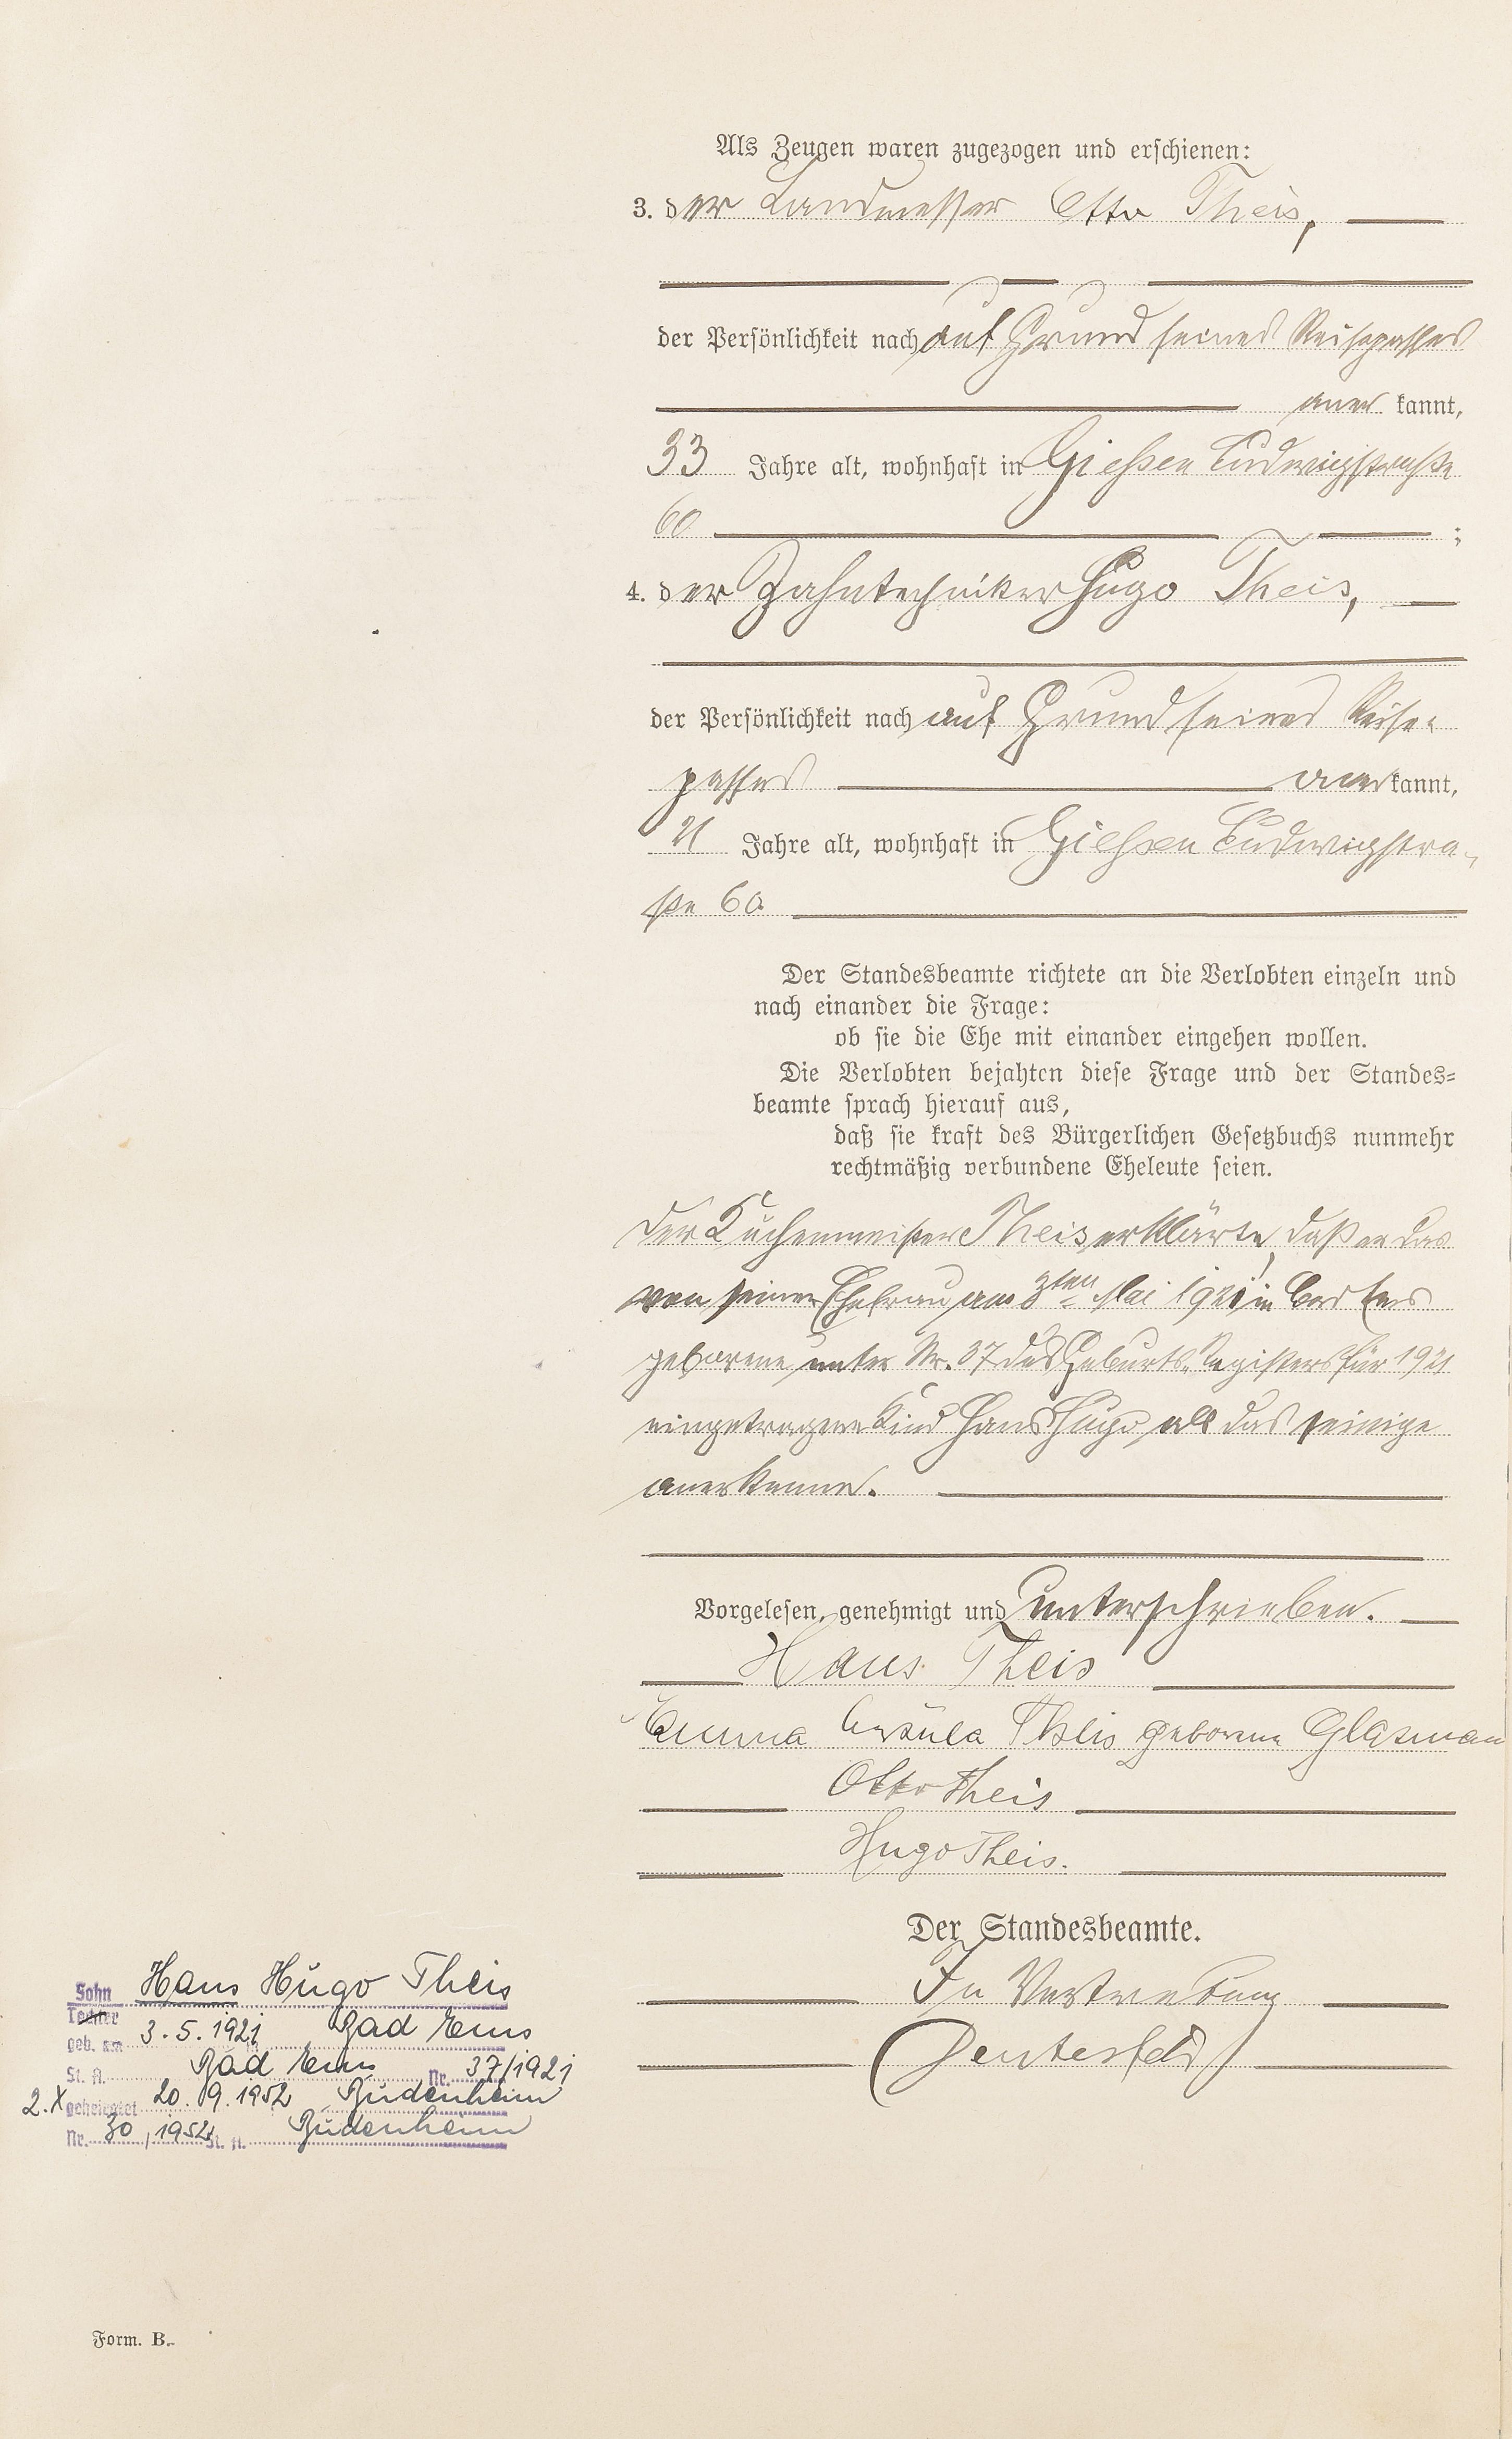 Als Zeugen waren zugezogen und erschienen:
3. der Landmesser Otto Theis,
der Persönlichkeit nach auf Grund seines Reisepasses
aner kannt,
33 Jahre alt, wohnhaft in Gießen Ludwigstraße
60 ;
4. der Zahntechniker Hugo Theis,
der Persönlichkeit nach auf Grund seines Reise-
passes anerkannt,
21 Jahre alt, wohnhaft in Gießen Ludwigstra-
ße 60
Der Standesbeamte richtete an die Verlobten einzeln und
nach einander die Frage:
ob sie die Ehe mit einander eingehen wollen.
Die Verlobten bejahten diese Frage und der Standes-
beamte sprach hierauf aus,
daß sie kraft des Bürgerlichen Gesetzbuchs nunmehr
rechtmäßig verbundene Eheleute seien.
Der Küchenmeister Theis erklärte, daß er das
von seiner Ehefrau am 3ten Mai 1921 in Bad Ems
geborene unter Nr. 37 des Geburts-Registers für 1921
eingetragene Kind Hans Hugo, als das seinige
anerkenne.
Vorgelesen, genehmigt und unterschrieben.
Hans Theis
Emma Ursula Theis geborene Glasman
Otto Theis
Hugo Theis.
Der Standesbeamte.
In Vertretung
Sohn Hans Hugo Theis
Tochter
geb. am 3.5.1921 Bad Ems
St. A. Bad Ems Nr. 37/1921
2.X geheiratet 20.9.1952 Budenheim
Nr. 30, 1952 St. A. Budenheim
Form. B.